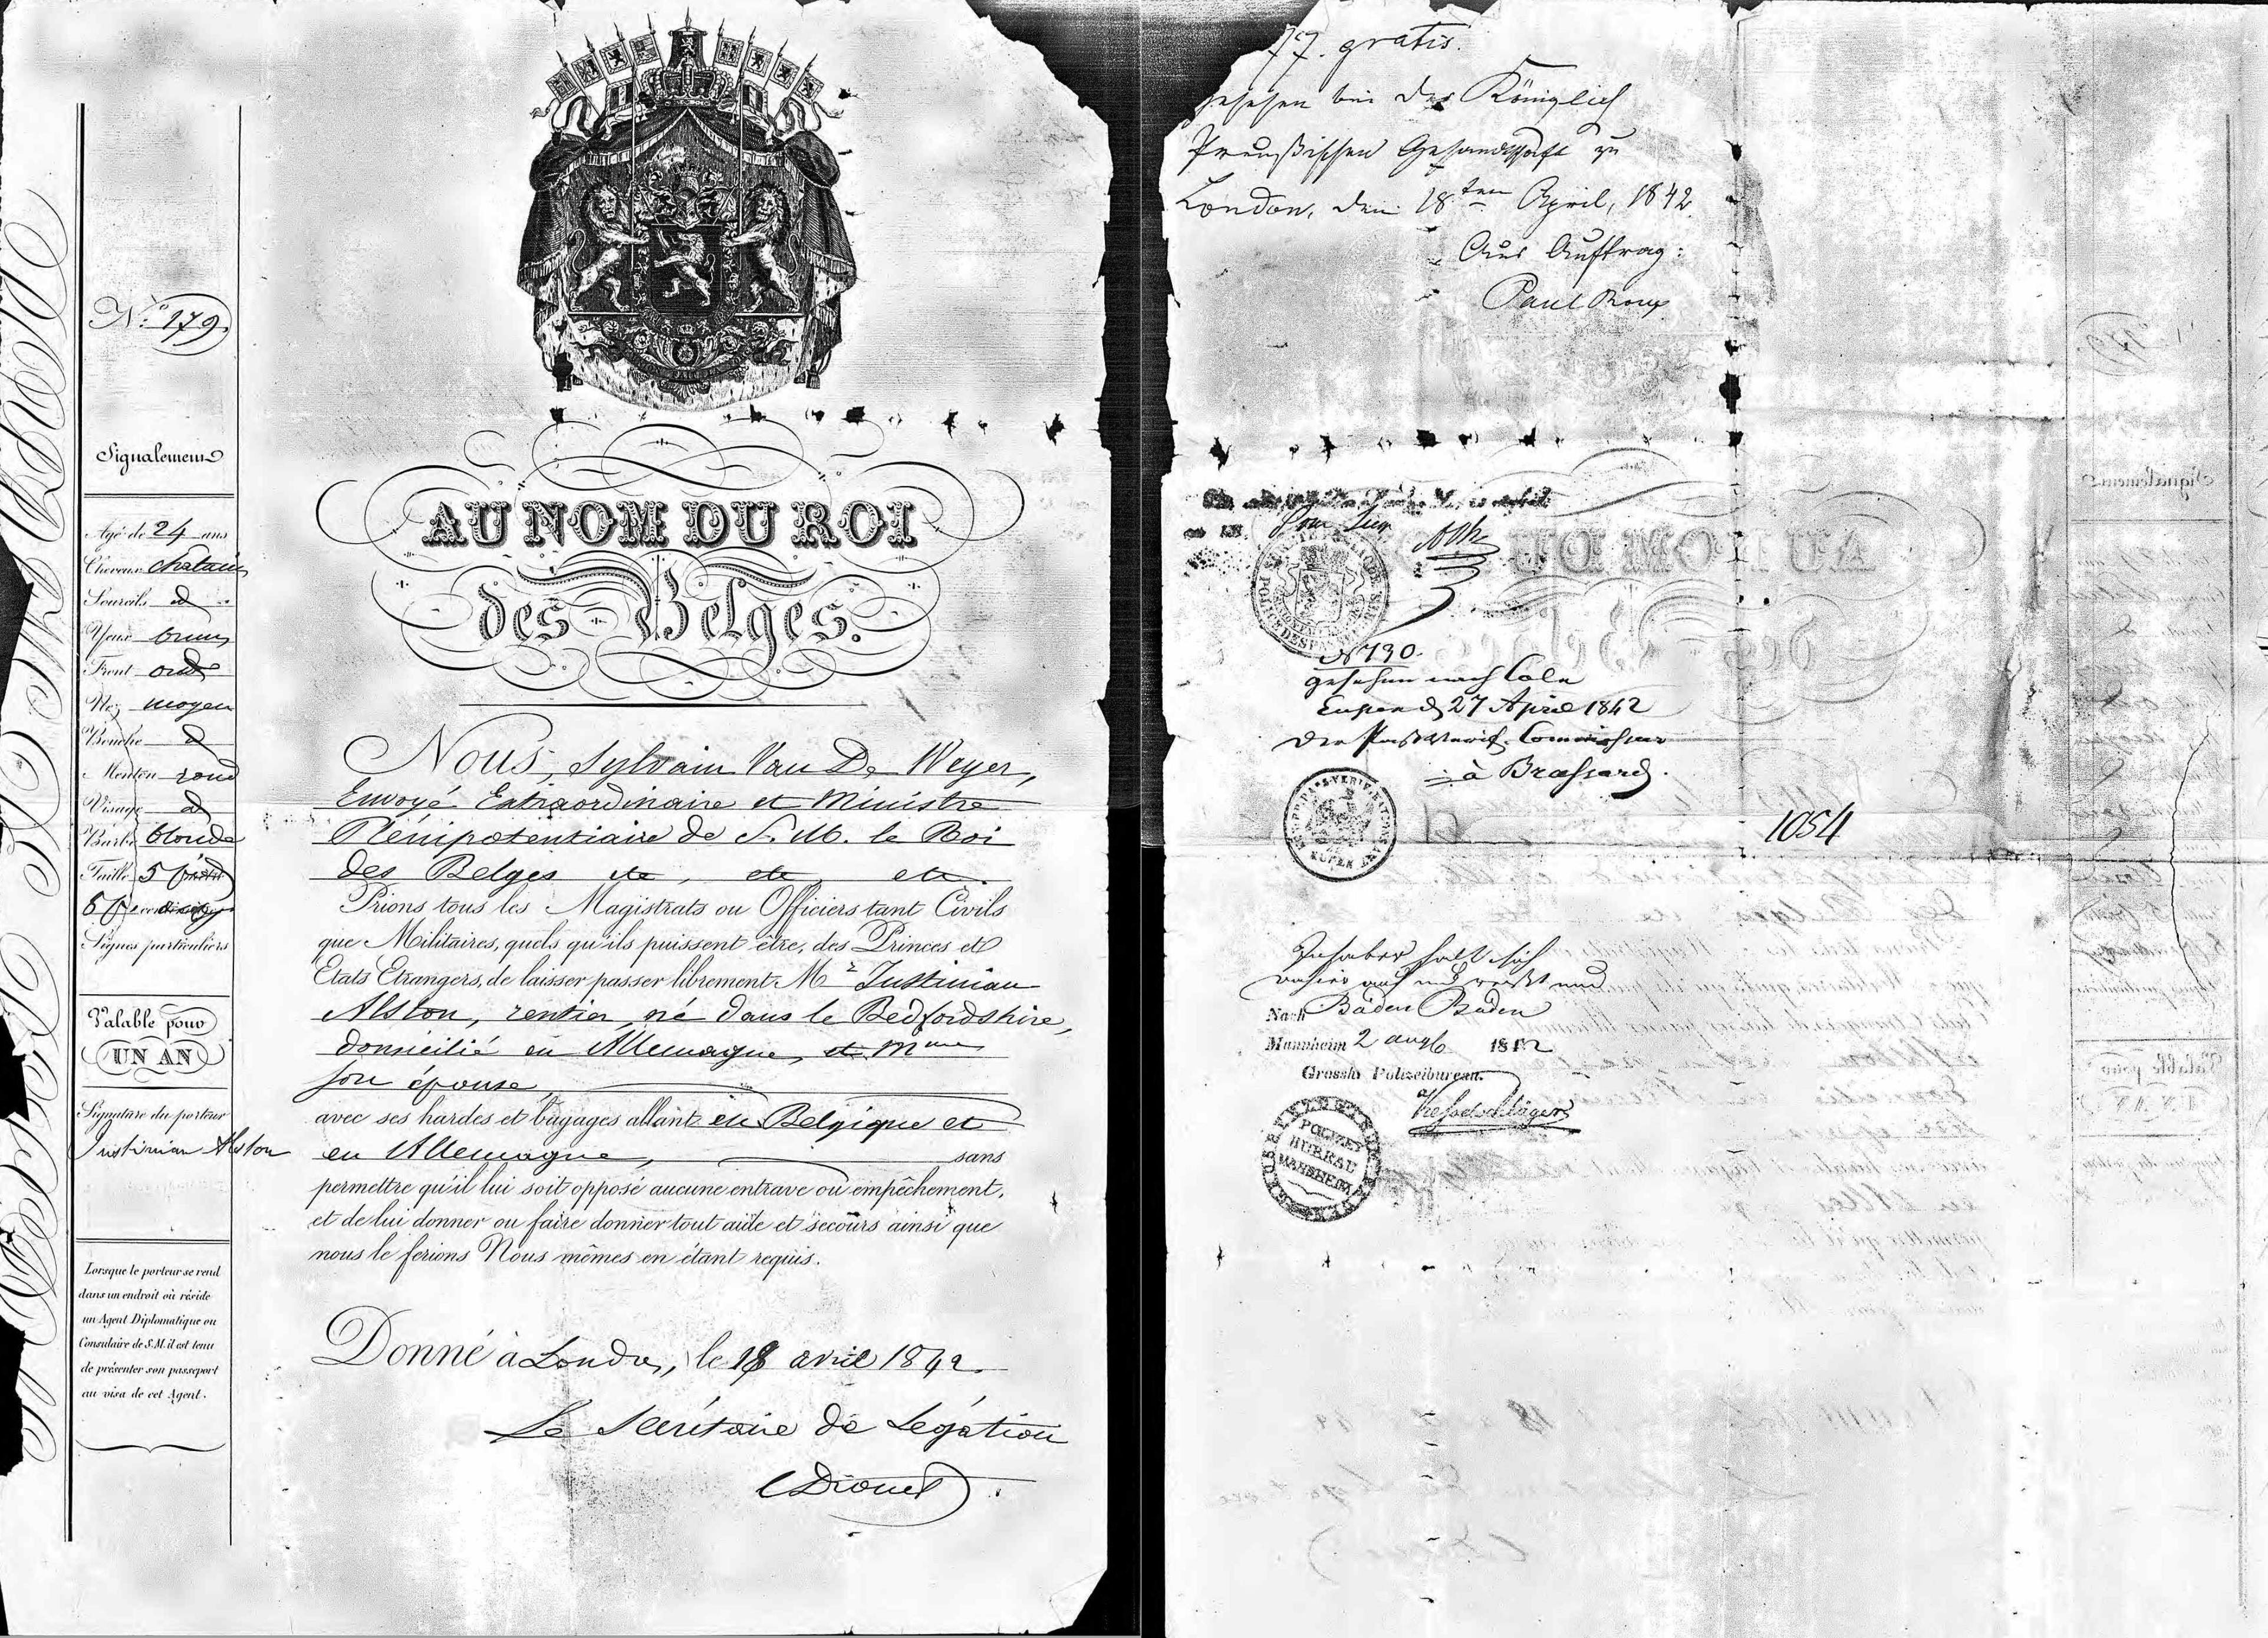 N.° 179.
Signalement
Agé de 24 ans
Cheveux chatains
Sourcils d
Yeux bruns
Front
Nez moyen
Bouche d
Menton rond
Visage d
Barbe blonde
Taille 5
Signes particuliers
Valable pour
UN AN
Signature du porteur
Justinian Alston
Lorsque le porteur se rend
dans un endroit où réside
un Agent Diplomatique ou
Consulaire de S.M. il est tenu
de présenter son passeport
au visa de cet Agent.
AU NOM DU ROI
des Belges.
Nous, Sylvain Van De Weyer,
Envoyé Extraordinaire et Ministre
Plénipotentiaire de S. M. le Roi
des Belges etc, etc, etc.
Prions tous les Magistrats ou Officiers tant Civils
que Militaires, quels qu'ils puissent être, des Princes et
Etats Etrangers, de laisser passer librement Mr Justinian
Alston, rentier, né dans le Bedfordshire,
domicilié en Allemagne, et Mme
son épouse,
avec ses hardes et bagages allant en Belgique et
en Allemagne, sans
permettre qu'il lui soit opposé aucune entrave ou empêchement,
et de lui donner ou faire donner tout aide et secours ainsi que
nous le ferions Nous mêmes en étant requis.
Donné à Londres, le 18 avril 1842.
Le Secrétaire de Légation
Drouet
77. gratis.
Gesehen bei der Königlich
Preußischen Gesandtschaft zu
London, den 18ten April, 1842.
Aus Auftrag:
Paul
N 730.
gesehen nach Cöln
Eupen d 27 April 1842
Der Commissar
à Brassard.
EUPEN
1054
Inhaber hat sich
dahier auf und reist nun
Nach Baden Baden
Mannheim 2 augt 1842
Grossh. Polizeibureau.
POLIZEY
BUREAU
MANNHEIM